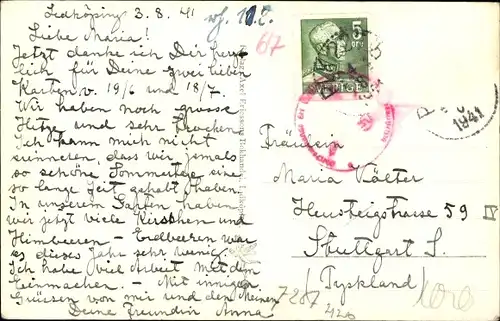 Lidköping 3. 8. 41
Liebe Maria!
Jetzt danke ich Dir herz
lich für Deine zwei lieben
Karten v. 19/6 und 18/7.
Wir haben noch grosse
Hitze und sehr trocken.
Ich kann mich nicht
erinneren, dass wir jemals
so schöne Sommertage eine
so lange Zeit gehabt haben.
In unserem Garten haben
wir jetzt viele Kirschen und
Himbeeren - Erdbeeren war
es dieses Jahr sehr wenig.
Ich habe viel Arbeit mit dem
Einmachen. - Mit innigen
Grüssen von mir und den Meinen
Deine Freundin Anna
67
5
ÖRE
SVERIGE
1941
Fräulein
Maria Kälter
Heusteigstrasse 59
Stuttgart S.
(Tyskland)
7287
1000